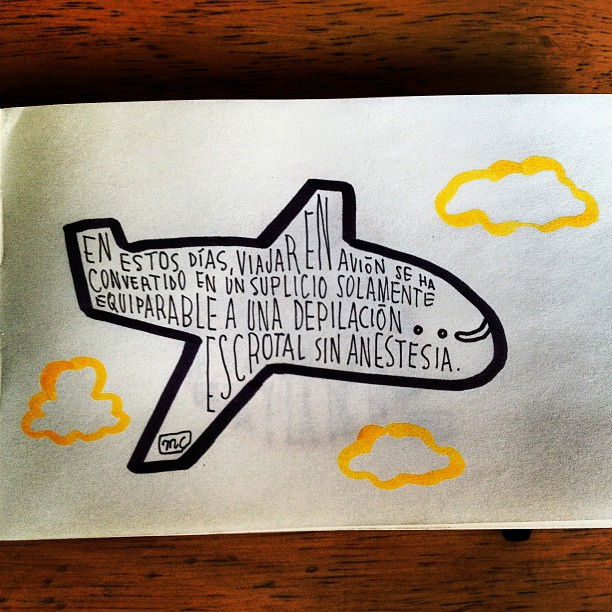 EN ESTOS DÍAS, VIAJAR EN AVIÓN SE HA
CONVERTIDO EN UN SUPLICIO SOLAMENTE
EQUIPARABLE A UNA DEPILACIÓN
ESCROTAL SIN ANESTESIA.
MC